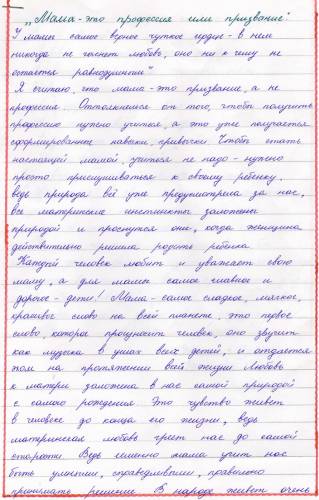 „Мама - это профессия или призвание"
У мамы самое верное чуткое сердце - в нем
никогда не гаснет любовь, оно ни к чему не
остается равнодушным"
Я считаю, что мама - это призвание, а не
профессия. Оттолкнемся от того, чтобы получить
профессию нужно учиться, а это уже получается
сформированные навыки, привычки Чтобы стать
настоящей мамой, учиться не надо - нужно
просто прислушиваться к своему ребенку,
ведь природа всё уже предусмотрела за нас,
все материнские инстинкты заложены
природой и проснутся они, когда женщина
действительно решила родить ребенка
Каждый человек любит и уважает свою
маму, а для мамы самое главное и
дорогое - дети! Мама - самое сладкое, мягкое,
красивое слово на всей планете, это первое
слово которое произносит человек, оно звучит
как музыка в ушах всех детей, и отдается
том на протяжении всей жизни Любовь
к матери заложена в нас самой природой
с самого рождения Это чувство живет
в человеке до конца его жизни, ведь
материнская любовь греет нас до самой
старости Ведь именно мама учит нас
быть умными, справедливыми, правильно
принимать решение В народе живет очень